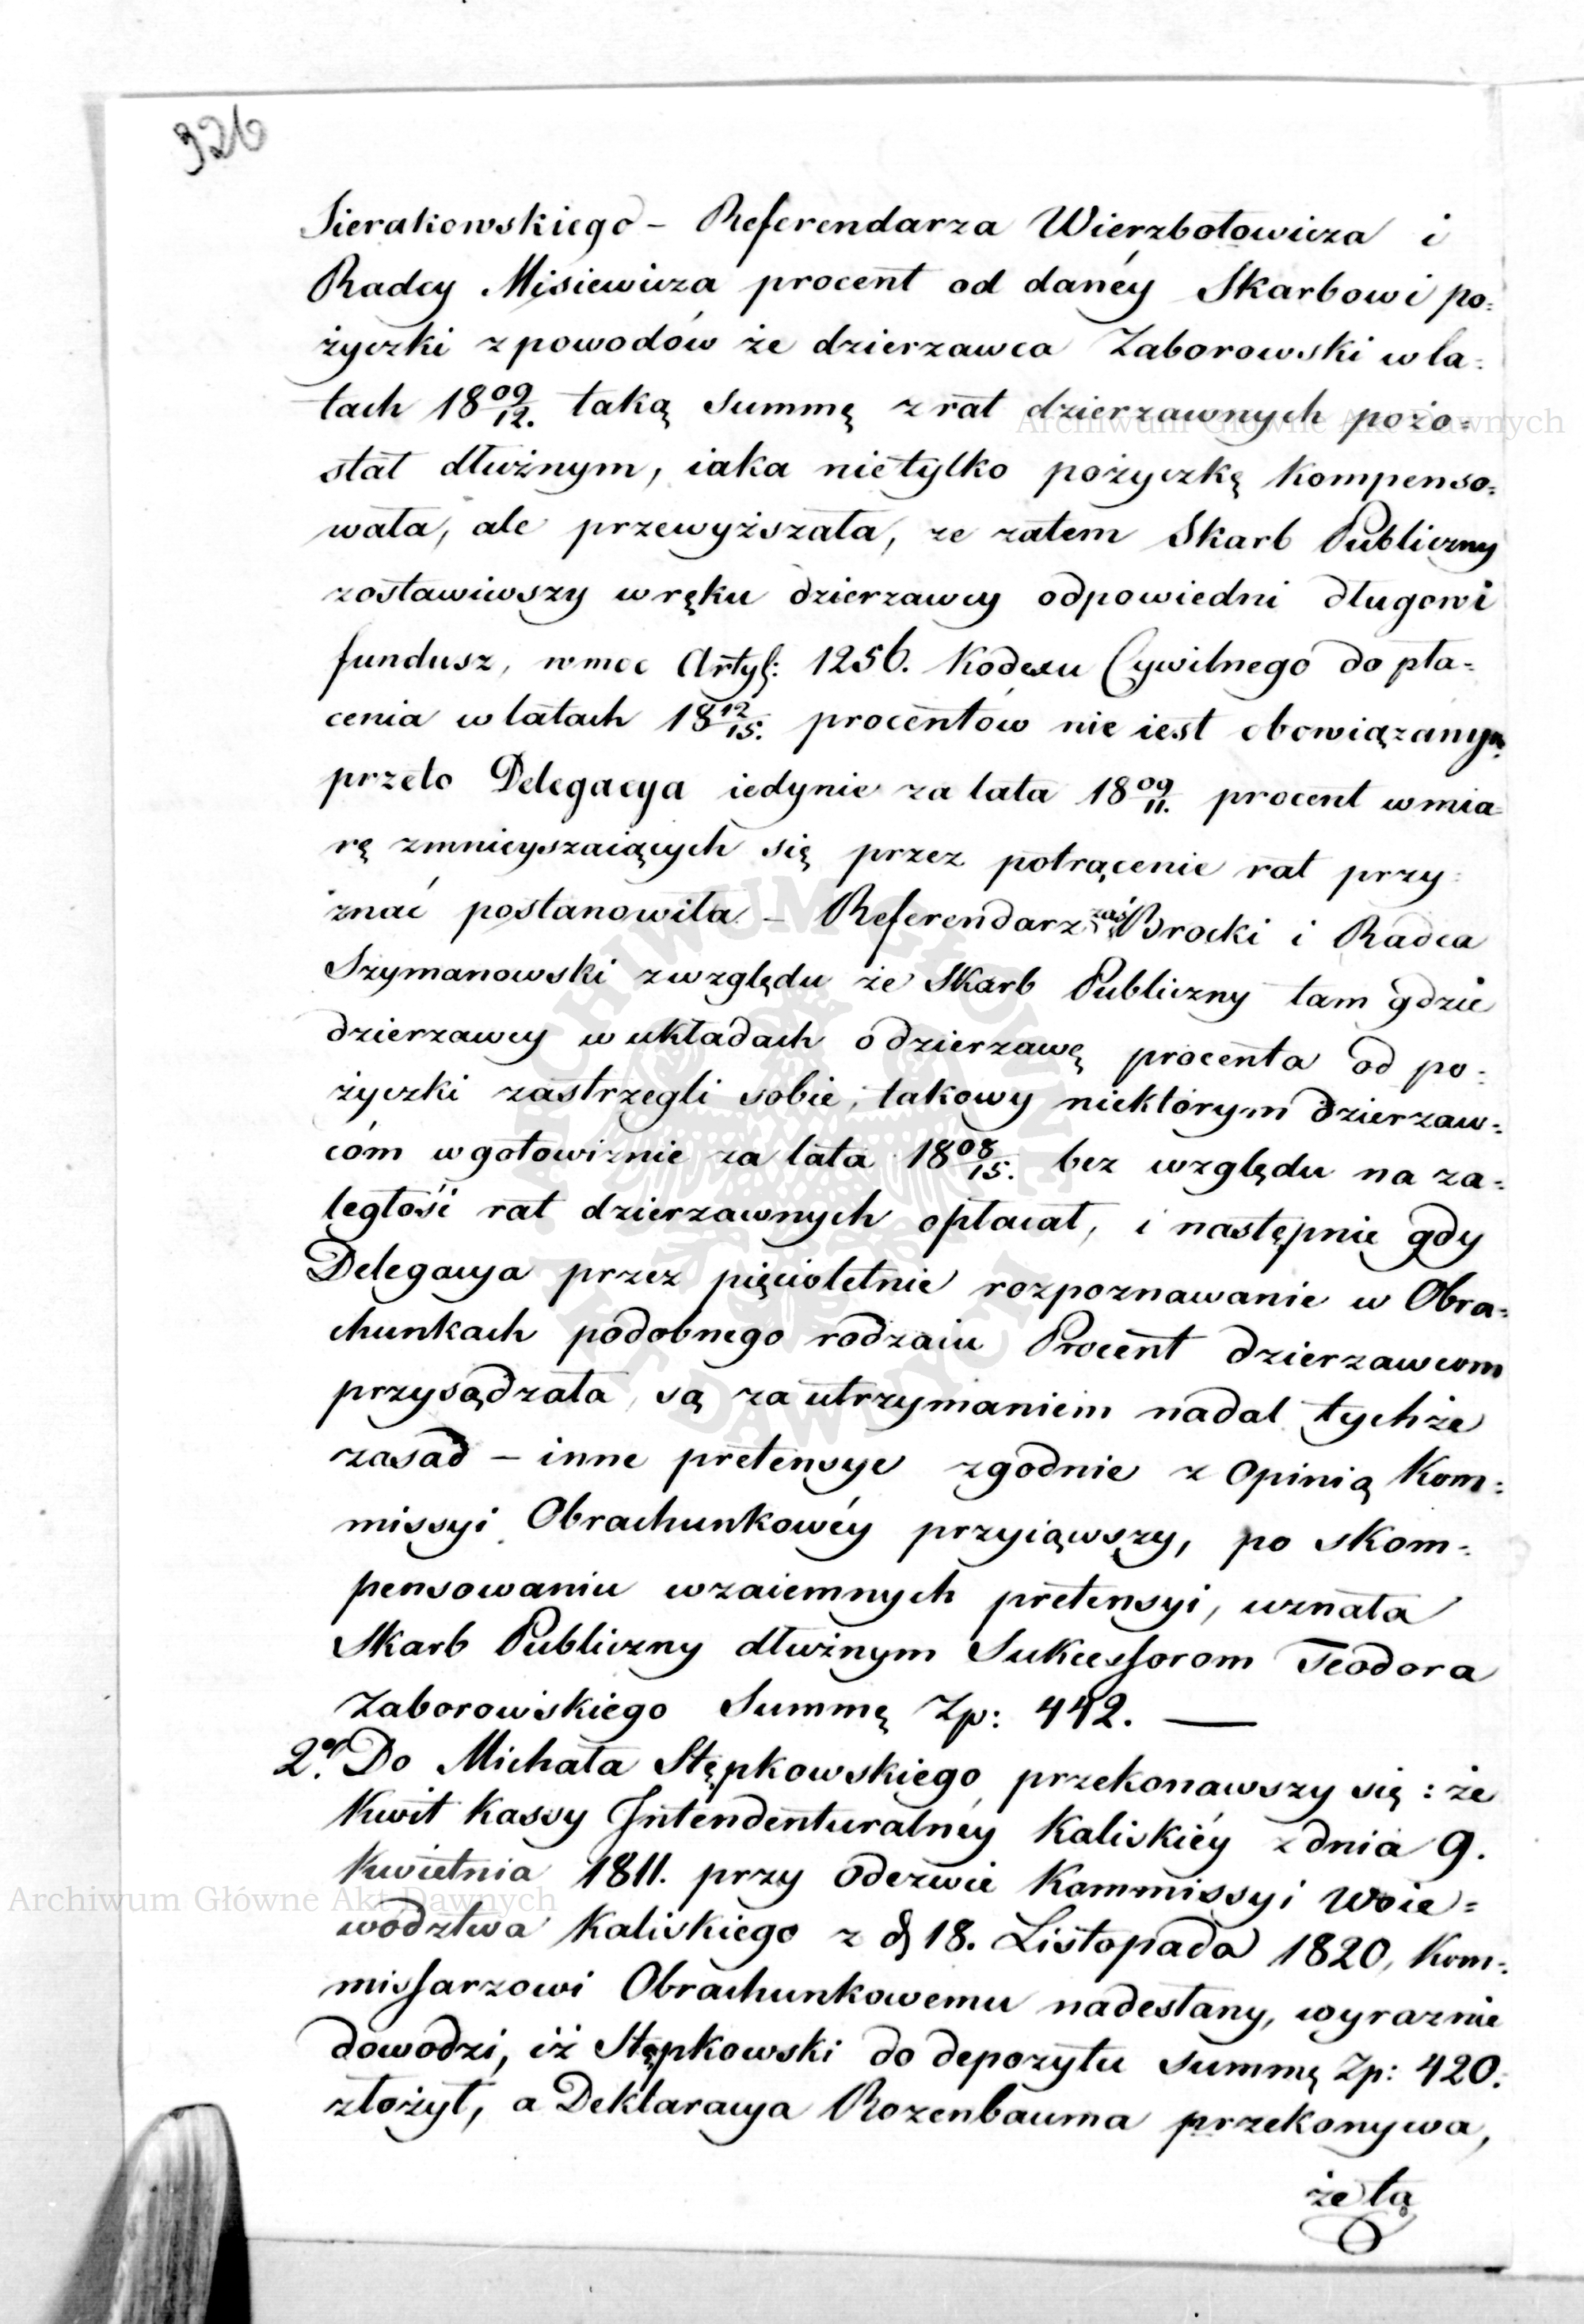 326
Sierakowskiego – Referendarza Wierzbołowicza i
Radcy Misiewicza procent od danéy Skarbowi po=
życzki z powodów że dzierzawca Zaborowski w la=
tach 18 09/12. taką summę z rat dzierzawnych pozo=
stał dłużnym, iaka nietylko pożyczkę kompenso=
wała, ale przewyższała, ze zatem Skarb Publiczny
zostawiwszy w ręku dzierzawcy odpowiedni długowi
fundusz, w moc Artyk: 1256. Kodexu Cywilnego do pła=
cenia w latach 18 12/15. procentów nie iest obowiązanym
przeto Delegacya iedynie za lata 18 09/11. procent w mia=
rę zmnieyszaiących się przez potrącenie rat przy=
znać postanowiła – Referendarz zaś Brocki i Radca
Szymanowski z względu że Skarb Publiczny tam gdzie
dzierzawcy w układach o dzierzawę procenta od po=
życzki zastrzegli sobie, takowy niektórym dzierzaw=
cóm w gotowiznie za lata 18 08/15. bez względu na za=
ległość rat dzierzawnych opłacał, i następnie gdy
Delegacya przez pięcioletnie rozpoznawanie w Obra=
chunkach podobnego rodzaiu Procent dzierzawcom
przysądzała, są za utrzymaniem nadal tychże
zasad – inne pretensye zgodnie z Opinią Kom=
missyi Obrachunkowéy przyiąwszy, po skom=
pensowaniu wzaiemnych pretensyi, uznała
Skarb Publiczny dłużnym Sukcessorom Teodora
Zaborowskiego Summę Zp: 442. —
2o. Do Michała Stępkowskiego przekonawszy się: że
Kwit Kassy Intendenturalnéy Kaliskiéy z dnia 9.
Kwietnia 1811. przy odezwie Kommissyi Woie=
wództwa Kaliskiego z d. 18. Listopada 1820, Kom=
missarzowi Obrachunkowemu nadesłany, wyraznie
dowodzi, iż Stępkowski do depozytu summę Zp: 420.
złożył, a Deklaracya Rozenbauma przekonywa,
że tą
Archiwum Główne Akt Dawnych
Archiwum Główne Akt Dawnych
ARCHIWUM GŁÓWNE AKT DAWNYCH